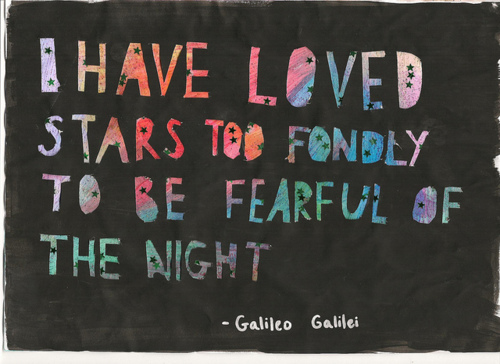 I HAVE LOVED
STARS TOO FONDLY
TO BE FEARFUL OF
THE NIGHT
- Galileo Galilei